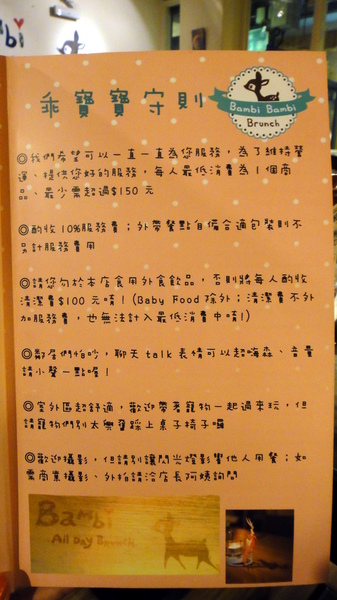 乖寶寶守則
Bambi Bambi
Brunch
◎我們希望可以一直一直為您服務，為了維持營
運、提供您好的服務，每人最低消費為1個商
品、最少需超過$150元
◎酌收10%服務費；外帶餐點自備合適包裝則不
另計服務費用
◎請您勿於本店食用外食飲品，否則將每人酌收
清潔費$100元唷！(Baby Food除外；清潔費不外
加服務費，也無法計入最低消費中唷!)
◎鄰居們怕吵，聊天talk表情可以超嗨森、音量
請小聲一點喔！
◎室外區超舒適，歡迎帶著寵物一起過來玩，但
請寵物們別太興奮踩上桌子椅子囉
◎歡迎攝影，但請別讓閃光燈影響他人用餐；如
需商業攝影、外拍請洽店長阿姨詢問
Bambi
All Day Brunch